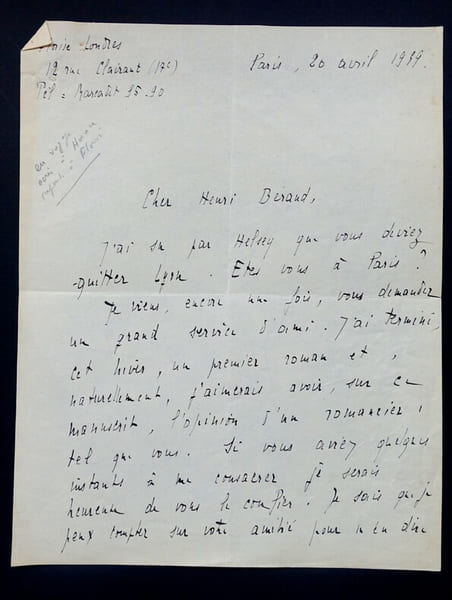 Florise Londres
12 rue Clairaut (17e)
Tél : Marcadet 95-90
Paris, 20 avril 1939.
en voyage
écrire à
Cher Henri Béraud,
J'ai su par Helsey que vous deviez
quitter Lyon. Etes vous à Paris ?
Je viens, encore une fois, vous demander
un grand service d'ami. J'ai terminé,
cet hiver, un premier roman et,
naturellement, j'aimerais avoir, sur ce
manuscrit, l'opinion d'un romancier
tel que vous. Si vous aviez quelques
instants à me consacrer je serais
heureuse de vous le confier. Je sais que je
peux compter sur votre amitié pour m'en dire